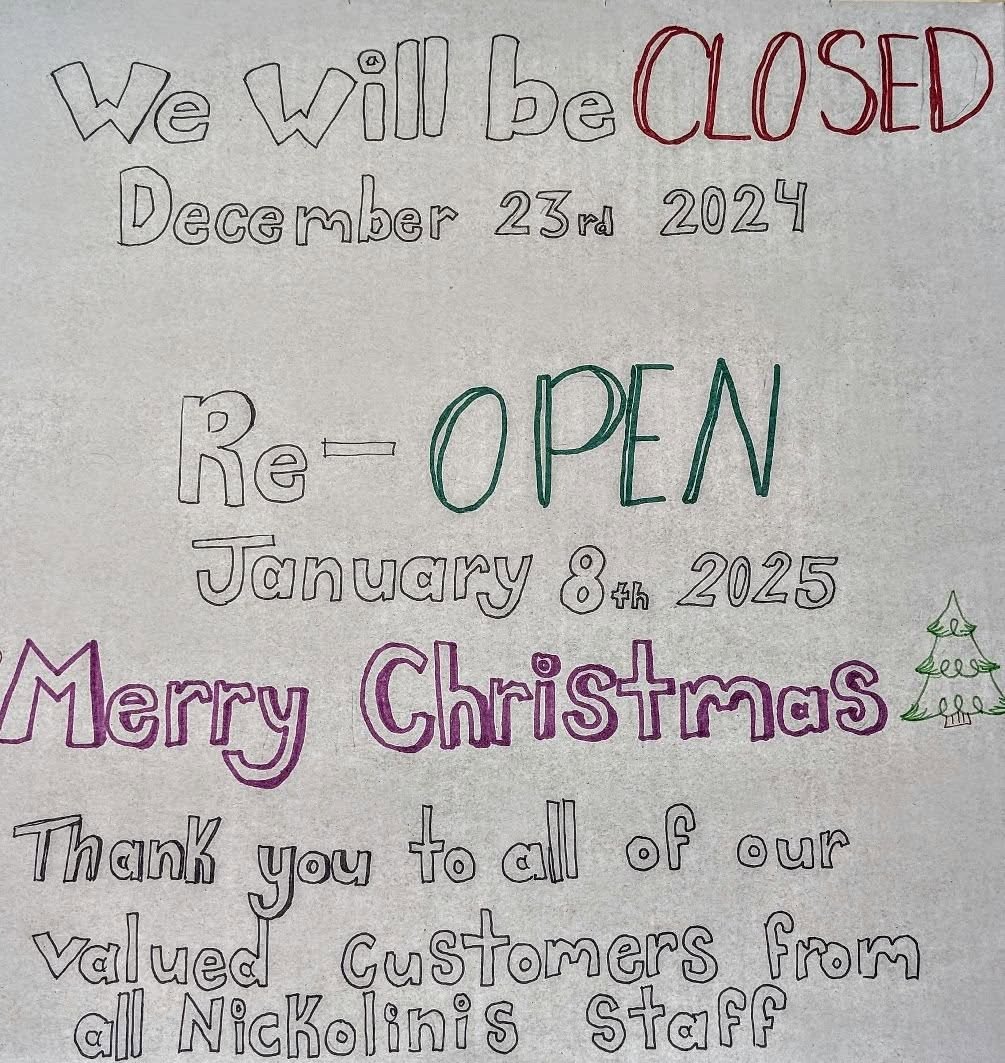 We Will be CLOSED
December 23rd 2024
Re-OPEN
January 8th 2025
Merry Christmas
Thank you to all of our
valued customers from
all Nickolinis staff